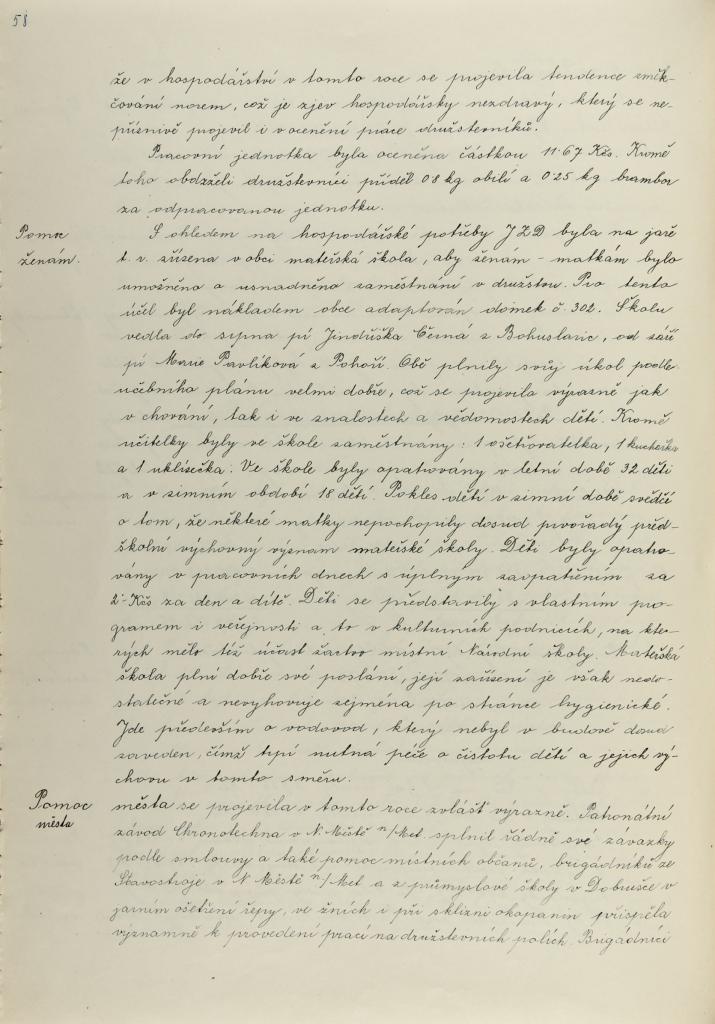 58
že v hospodářství v tomto roce se projevila tendence změk-
čování norem, což je zjev hospodářsky nezdravý, který se ne-
příznivě projevil i v ocenění práce družstevníků.
Pracovní jednotka byla oceněna částkou 11·67 Kčs. Kromě
toho obdrželi družstevníci příděl 0·8 kg obilí a 0·25 kg brambor
za odpracovanou jednotku.
Pomoc
ženám.
S ohledem na hospodářské potřeby JZD byla na jaře
t. r. zřízena v obci mateřská škola, aby ženám - matkám bylo
umožněno a usnadněno zaměstnání v družstvu. Pro tento
účel byl nákladem obce adaptován domek č. 302. Školu
vedla do srpna pí Jindřiška Černá z Bohuslavic, od září
pí Marie Pavlíková z Pohoří. Obě plnily svůj úkol podle
učebního plánu velmi dobře, což se projevila výrazně jak
v chování, tak i ve znalostech a vědomostech dětí. Kromě
učitelky byly ve škole zaměstnány: 1 ošetřovatelka, 1 kuchařka
a 1 uklízečka. Ve škole byly opatrovány v letní době 32 děti
a v zimním období 18 dětí. Pokles dětí v zimní době svědčí
o tom, že některé matky nepochopily dosud prvořadý před-
školní výchovný význam mateřské školy. Děti byly opatro-
vány v pracovních dnech s úplným zaopatřením za
2·- Kčs za den a dítě. Děti se představily s vlastním pro-
gramem i veřejnosti a to v kulturních podnicích, na kte-
rých mělo též účast žactvo místní Národní školy. Mateřská
škola plní dobře své poslání, její zařízení je však nedo-
statečné a nevyhovuje zejména po stránce hygienické.
Jde především o vodovod, který nebyl v budově dosud
zaveden, čímž trpí nutná péče o čistotu dětí a jejich vý-
chovu v tomto směru.
Pomoc
města
města se projevila v tomto roce zvlášť výrazně. Patronátní
závod Chronotechna v N. Městě n/Met. splnil řádně své závazky
podle smlouvy a také pomoc místních občanů, brigádníků ze
Stavostroje v N Městě n/Met a z průmyslové školy v Dobrušce v
jarním ošetření řepy, ve žních i při sklizni okopanin přispěla
významně k provedení prací na družstevních polích. Brigádníci